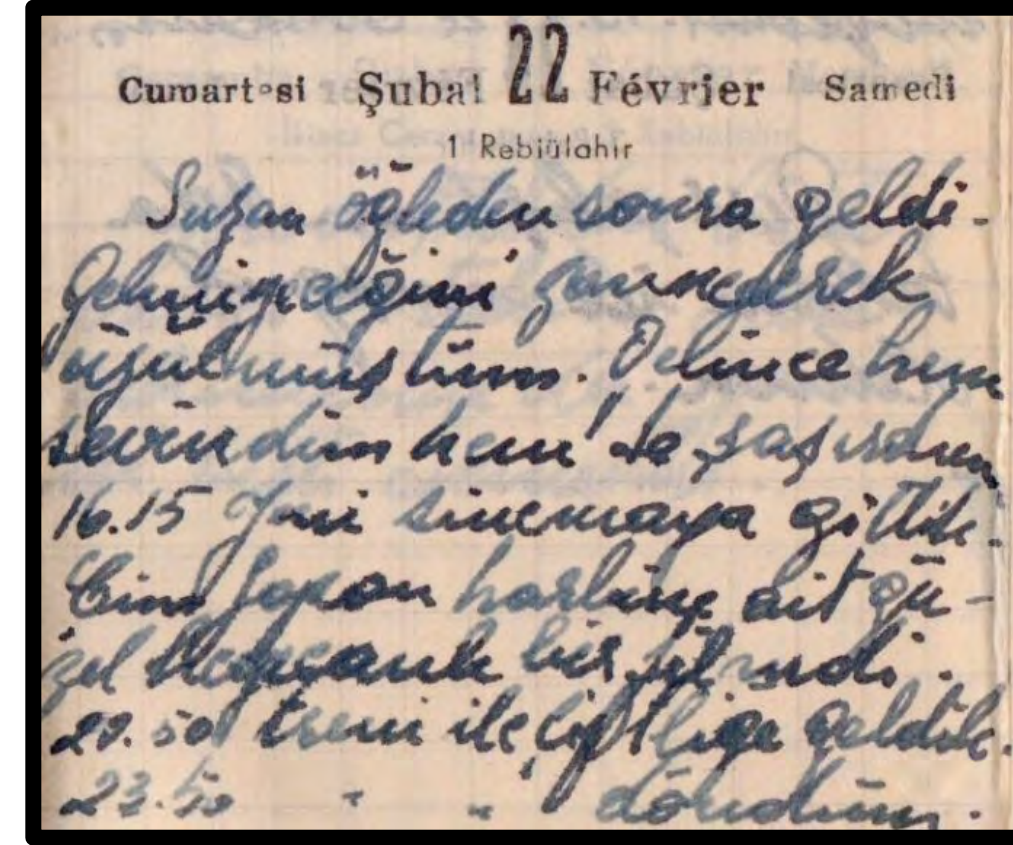 Cumartesi Şubat 22 Février Samedi
1 Rebiülahir
Suzan öğleden sonra geldi.
Gelmiyeceğini zannederek
üzülmüştüm. Gelince hem
sevindim hem de şaşırdım
16.15 Yeni sinemaya gittik.
Çin Japon harbine ait gü-
zel heyecanlı bir filmdi.
20.50 treni ile çiftliğe geldik.
23.50 " " döndüm.